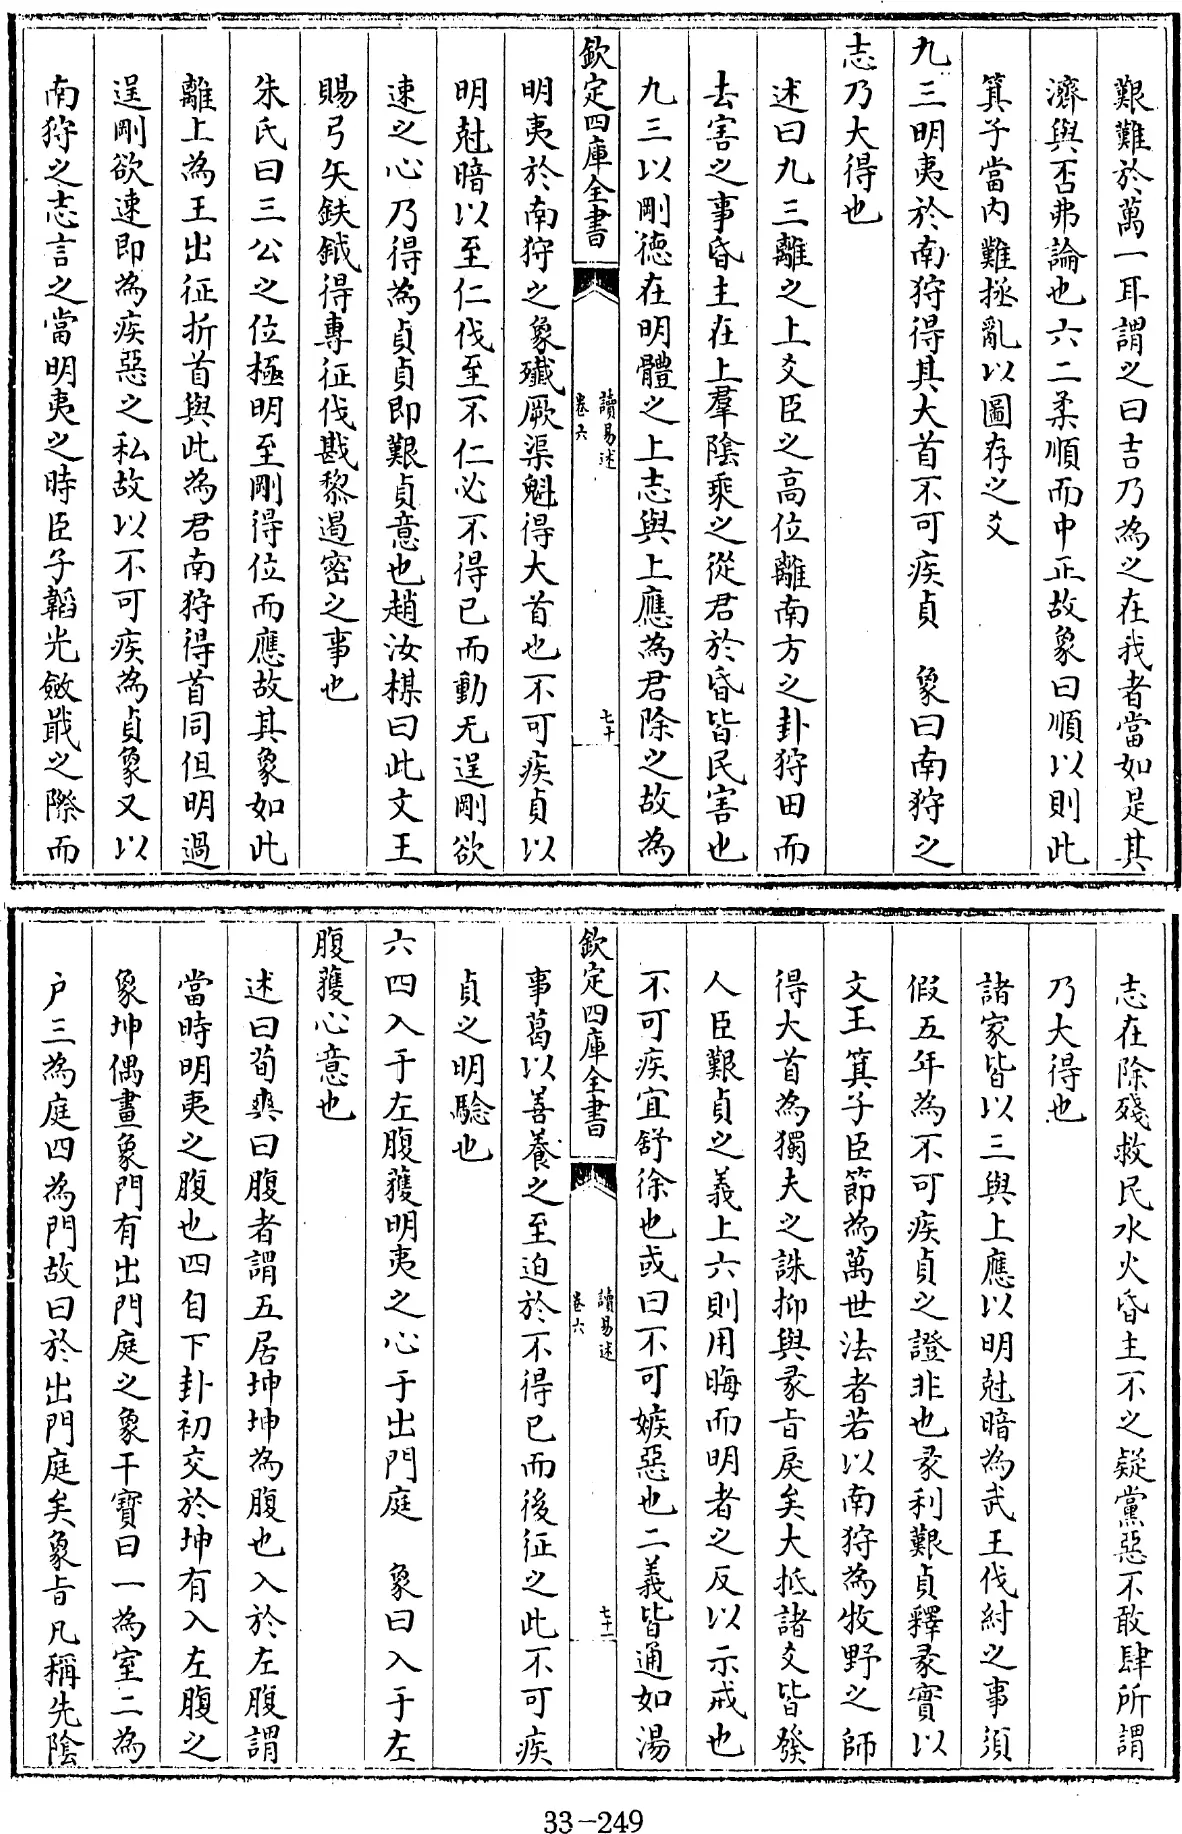 艱難於萬一耳謂之曰吉乃為之在我者當如是其
濟與否弗論也六二柔順而中正故象曰順以則此
箕子當內難拯亂以圖存之爻
九三明夷於南狩得其大首不可疾貞　象曰南狩之
志乃大得也
述曰九三離之上爻臣之高位離南方之卦狩田而
去害之事昏主在上羣陰乘之從君於昏皆民害也
九三以剛德在明體之上志與上應為君除之故為
欽定四庫全書
讀易述
卷六
七十
明夷於南狩之象殲厥渠魁得大首也不可疾貞以
明尅暗以至仁伐至不仁必不得已而動无逞剛欲
速之心乃得為貞貞即艱貞意也趙汝楳曰此文王
賜弓矢鈇鉞得專征伐戡黎遏密之事也
朱氏曰三公之位極明至剛得位而應故其象如此
離上為王出征折首與此為君南狩得首同但明過
逞剛欲速即為疾惡之私故以不可疾為貞象又以
南狩之志言之當明夷之時臣子韜光斂戢之際而
志在除殘救民水火昏主不之疑黨惡不敢肆所謂
乃大得也
諸家皆以三與上應以明尅暗為武王伐紂之事須
假五年為不可疾貞之證非也彖利艱貞釋彖實以
文王箕子臣節為萬世法者若以南狩為牧野之師
得大首為獨夫之誅抑與彖旨戾矣大抵諸爻皆發
人臣艱貞之義上六則用晦而明者之反以示戒也
不可疾宜舒徐也或曰不可嫉惡也二義皆通如湯
欽定四庫全書
讀易述
卷六
七十一
事葛以善養之至迫於不得已而後征之此不可疾
貞之明驗也
六四入于左腹獲明夷之心于出門庭　象曰入于左
腹獲心意也
述曰荀爽曰腹者謂五居坤坤為腹也入於左腹謂
當時明夷之腹也四自下卦初交於坤有入左腹之
象坤偶畫象門有出門庭之象干寶曰一為室二為
户三為庭四為門故曰於出門庭矣象旨凡稱先陰
33-249